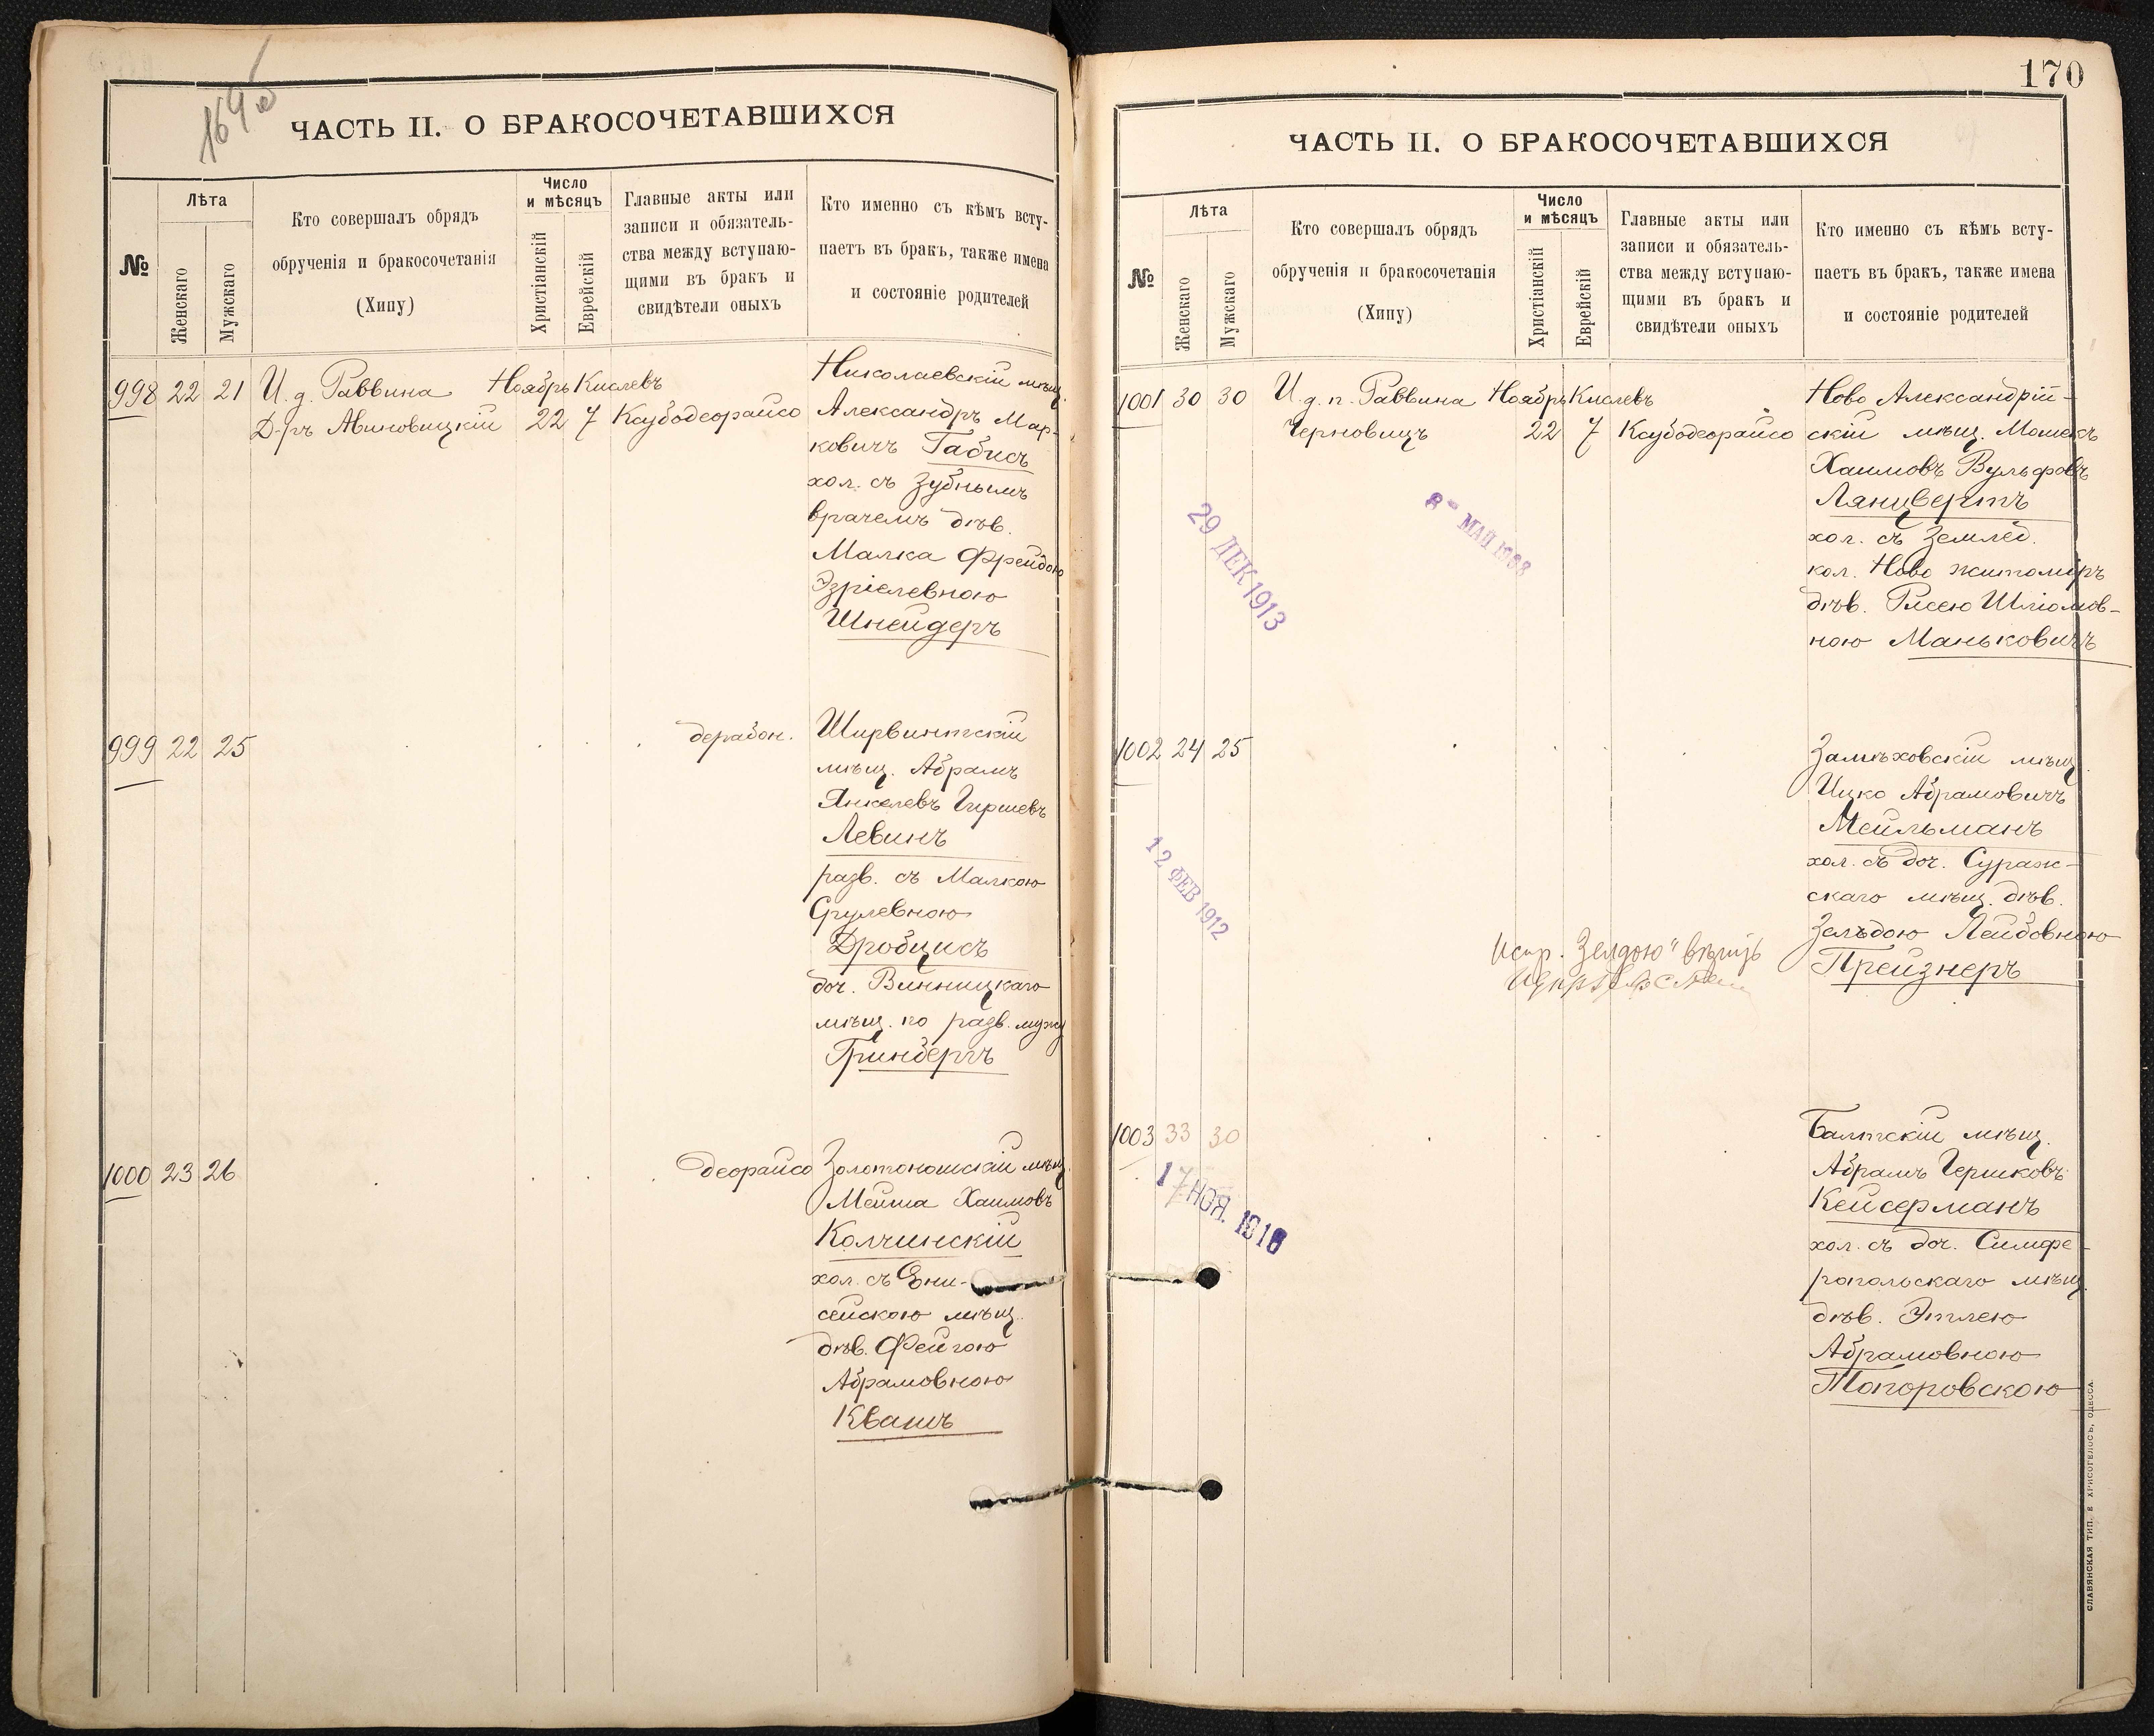 169 об
ЧАСТЬ II. О БРАКОСОЧЕТАВШИХСЯ
№
Лѣта
Женскаго
Мужскаго
Кто совершалъ обрядъ
обрученія и бракосочетанія
(Хипу)
Число
и мѣсяцъ
Христіанскій
Еврейскій
Главные акты или
записи и обязатель-
ства между вступаю-
щими въ бракъ и
свидѣтели оныхъ
Кто именно съ кѣмъ всту-
паетъ въ бракъ, также имена
и состояніе родителей
998 22 21 И. д. Раввина Ноябрь Кислевъ
Д-ръ Авиновицкій 22 7 Ксубодеорайсо
Николаевскій мѣщ.
Александръ Мар-
ковичъ Габисъ
хол. съ Зубнымъ
врачемъ дѣв.
Малка Фрейдою
Эзріелевною
Шнейдеръ
999 22 25 дерабон.
Ширвинтскій
мѣщ. Абрамъ
Янкелевъ Гиршевъ
Левинъ
разв. съ Малкою
Срулевною
Дробцисъ
доч. Винницкаго
мѣщ. по разв. мужу
Гринбергъ
1000 23 26 деорайсо
Золотоношскій мѣщ.
Мейша Хаимовъ
Колчинскій
хол. съ Ени-
сейскою мѣщ.
дѣв. Фейгою
Абрамовною
Квашъ
170
ЧАСТЬ II. О БРАКОСОЧЕТАВШИХСЯ
№
Лѣта
Женскаго
Мужскаго
Кто совершалъ обрядъ
обрученія и бракосочетанія
(Хипу)
Число
и мѣсяцъ
Христіанскій
Еврейскій
Главные акты или
записи и обязатель-
ства между вступаю-
щими въ бракъ и
свидѣтели оныхъ
Кто именно съ кѣмъ всту-
паетъ въ бракъ, также имена
и состояніе родителей
1001 30 30 И. д. п. Раввина Ноябрь Кислевъ
Черновицъ 22 7 Ксубодеорайсо
Ново Александрій-
скій мѣщ. Мошекъ
Хаимовъ Вульфовъ
Лянцвертъ
хол. съ Землед.
кол. Ново Житомиръ
дѣв. Рисею Шліомов-
ною Маньковичъ
29 ДЕК 1913
8 МАЙ 1908
1002 24 25
Замѣховскій мѣщ.
Ицко Абрамовичъ
Мейльманъ
хол. съ доч. Сураж-
скаго мѣщ. дѣв.
Зелъдою Лейбовною
Прейзнеръ
12 ФЕВ 1912
Испр. Зелдою"
1003 33 30
Балтскій мѣщ.
Абрамъ Гершковъ
Кейсерманъ
хол. съ доч. Симфе-
ропольскаго мѣщ.
дѣв. Этлею
Абрамовною
Топоровскою
17 НОЯ. 1916
СЛАВЯНСКАЯ ТИП. Е ХРИСОГЕЛОСЪ, ОДЕССА.